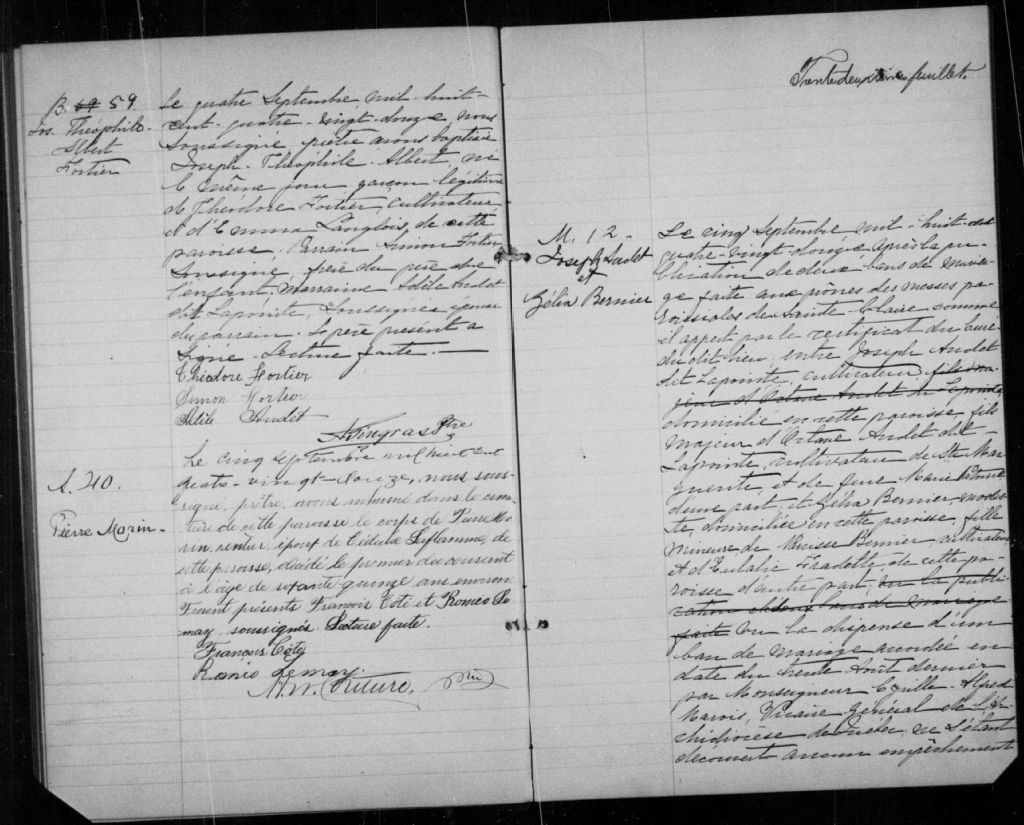 B. 59.
Jos. Théophile
Albert
Fortier
Le quatre Septembre mil huit-
cent-quatre-vingt-douze, nous
soussigné, prêtre avons baptisé
Joseph-Théophile-Albert, né
le même jour, garçon légitime
de Théodore Fortier, cultivateur
et d'Emma Langlois, de cette
paroisse. Parrain Simon Fortier
soussigné, frère du père de
l'enfant, Marraine Adile Audet
dit Lapointe, soussignée épouse
du parrain. Le père présent a
signé. Lecture faite.
Théodore Fortier
Simon Fortier
Adile Audet
Ptre
S. 40.
Pierre Morin
Le cinq septembre mil huit cent
quatre-vingt-douze, nous sous-
signé, prêtre, avons inhumé dans le cime-
tière de cette paroisse le corps de Pierre Mo-
rin, rentier, époux de Cédulie Laflamme, de
cette paroisse, décédé le premier du courant
à l'âge de soixante quinze ans environ
Furent présents François Coté et Roméo Le-
may soussignés. Lecture faite.
François Coté
Roméo Lemay
Couture, ptre
Trente deuxième feuillet.
M. 12-
Joseph Audet
et
Zélia Bernier
Le cinq Septembre mil-huit-cent
quatre-vingt douze, après la pu-
blication de deux bans de maria-
ge faite aux prônes des messes pa-
roissiales de Sainte Claire comme
il appert par le certificat du curé
du dit lieu, entre Joseph Audet
dit Lapointe, cultivateur fils ma-
jeur d'Octave Audet dit Lapointe,
domicilié en cette paroisse, fils
majeur d'Octave Audet dit
Lapointe, cultivateur de Ste Mar-
guerite, et de feue Marie
d'une part et Zélia Bernier modis-
te, domiciliée en cette paroisse, fille
mineure de Narcisse Bernier cultivateur
et d'Eulalie Fradette, de cette pa-
roisse d'autre part, vu la publi-
cation de deux bans de mariage
faite vu la dispense d'un
ban de mariage accordée en
date du trente Août dernier
par Monseigneur Cyrille-Alfred
Marois, Vicaire Général de l'Ar-
chidiocèse de Québec, ne s'étant
découvert aucun empêchement